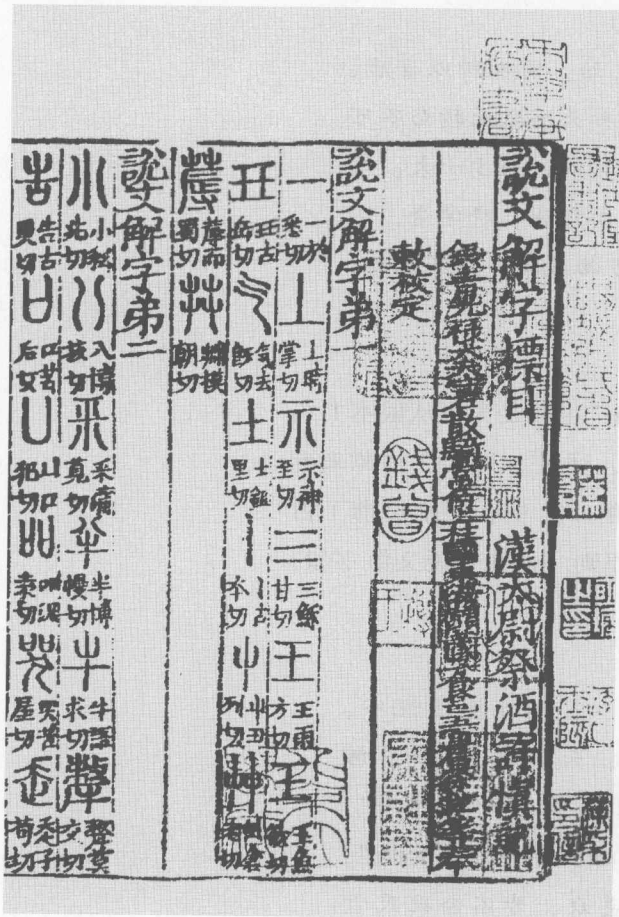 說文解字標目 漢太尉祭酒許慎記
銀青光祿大夫守右散騎常侍上柱國東海縣開國子食邑五百戶臣徐鉉等奉
敕校定
說文解字弟一
一 一於悉切 丄 丄時掌切 示 示神至切 三 三穌甘切 王 王雨方切 王 玉魚欲切
玨 玨古岳切 气 气去旣切 士 士鉏里切 丨 丨古本切 屮 屮丑列切 艸 艸倉老切
蓐 蓐而蜀切 茻 茻模朗切
說文解字弟二
小 小私兆切 八 八博拔切 釆 釆蒲莧切 半 半博幔切 牛 牛語求切 犛 犛莫交切
告 告古奧切 口 口苦后切 凵 凵口犯切 吅 吅況袁切 哭 哭苦屋切 走 走子苟切
錢曾